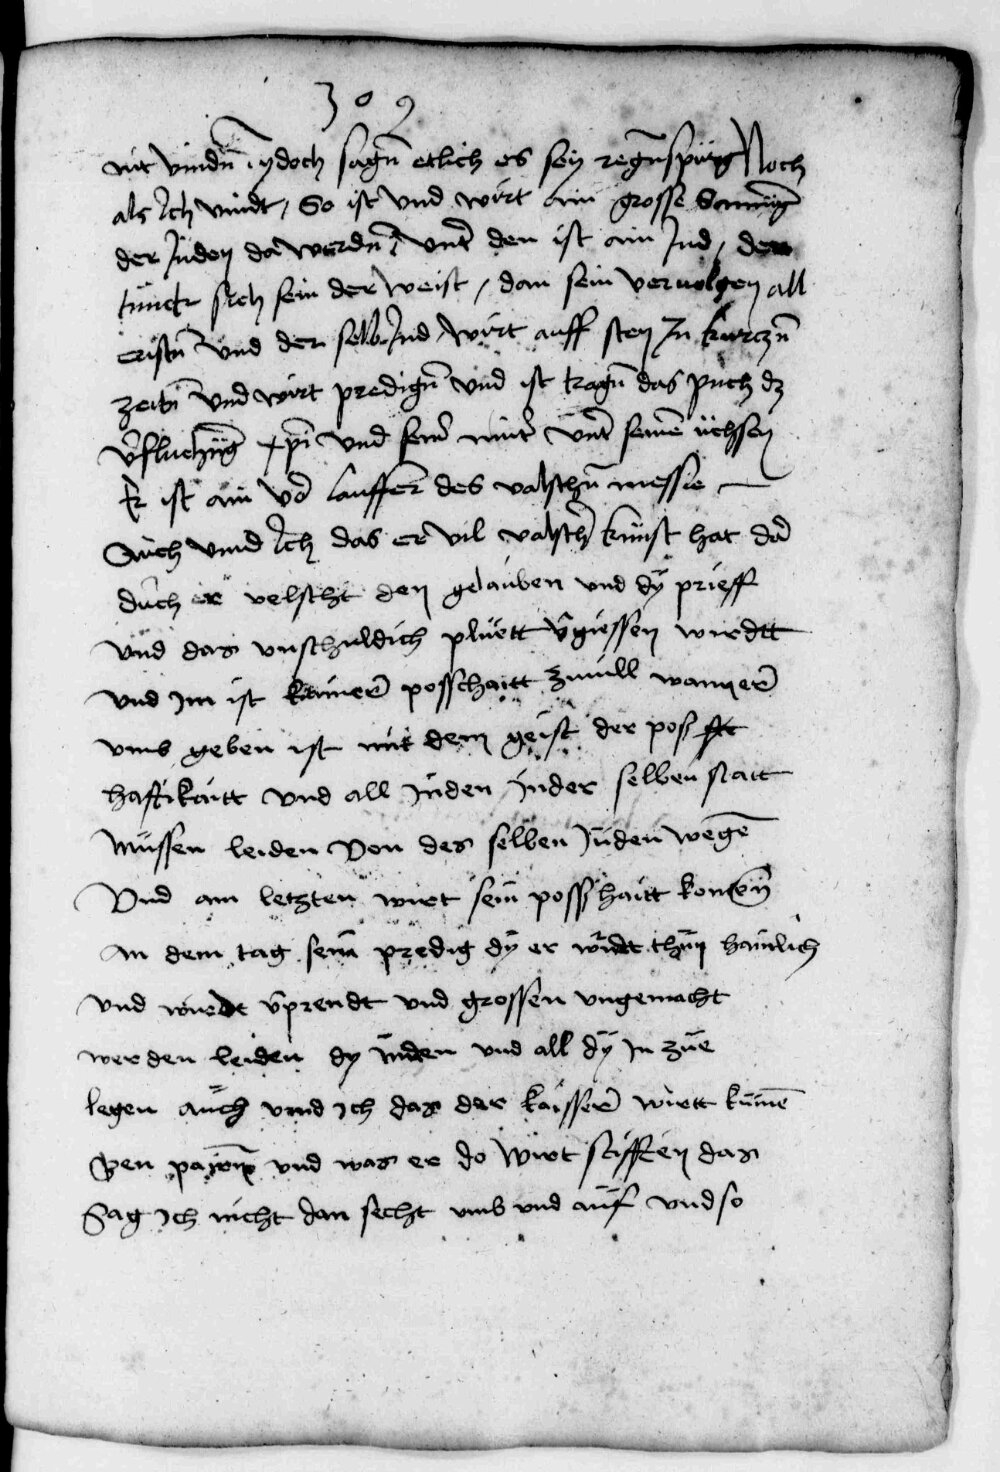 309
nit vindn̄ ydoch sagn̄ etlich es sey regn̄spurg Noch
als Ich vindt / So ist vnd wirt ain grosse samūg
der Juden da werdn̄ / vnt̄ den ist ain Jud / der
tunckt sich sein der weist / dan sein veruolgen all
cristn̄ vnd der selb Jud wirt auff sten In kurczn̄
zeitn̄ vnd wirt predign̄ vnd ist tragn̄ das puch dz
v̄fluchūg xp̄i vnd sein̄ mut̄ vnt̄ seinē üchsen
Er ist ain vo᷑ lauffer des valschn̄ messie
Auch vind Ich das er vil valsch̄ kunst hat da᷑
durch er velscht den gelauben vnd dÿ prieff
vnd das vnschuldich pluett v̄giessen wirdtt
vnd Im ist kainer posschaitt zuuill wann er
vmb geben ist mit dem geist der poß
haftikaitt vnd all Juden Inder selben statt
mussen leiden Von des selben Juden wegē
Vnd am letzten wirt sein posshaitt komen̄
An dem tag sein predig dÿ er wirdt thun hainlich
vnd wirdt v̄prendt vnd grossen vngemacht
werden leiden dy Juden vnd all dÿ In zue
legen auch vind Ich das der kaisser wirtt kumē
gen pairn̄ vnd was er do wirt stifften das
Sag Ich nicht dan secht vmb vnd auf vnd so